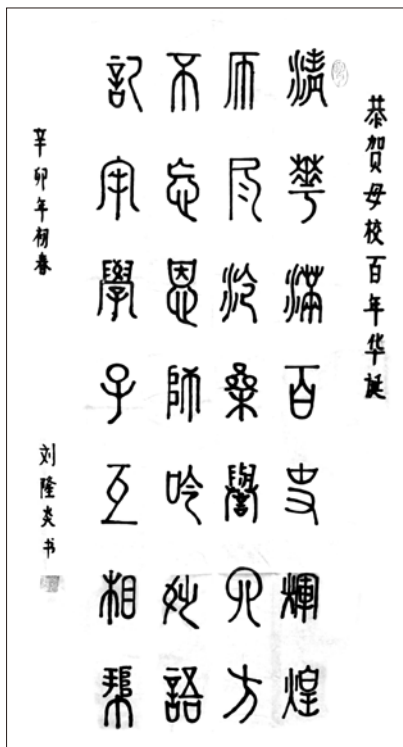 恭贺母校百年华诞
清華滿百史輝煌
雨风沧桑譽方
不忘恩師吟妙語
記牢學子互相幫
辛卯年初春
刘隆炎书